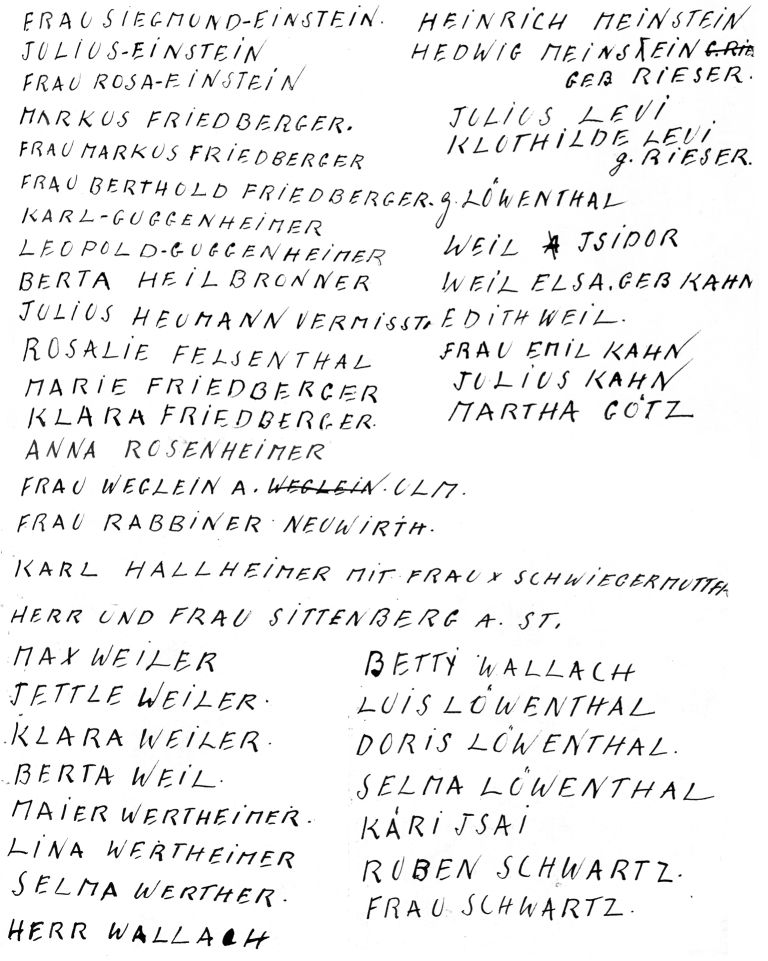 FRAU SIEGMUND-EINSTEIN.
JULIUS-EINSTEIN
FRAU ROSA-EINSTEIN
MARKUS FRIEDBERGER.
FRAU MARKUS FRIEDBERGER
FRAU BERTHOLD FRIEDBERGER. g. LÖWENTHAL
KARL-GUGGENHEIMER
LEOPOLD-GUGGENHEIMER
BERTA HEILBRONNER
JULIUS HEUMANN VERMISST.
ROSALIE FELSENTHAL
MARIE FRIEDBERGER
KLARA FRIEDBERGER.
ANNA ROSENHEIMER
HEINRICH MEINSTEIN
HEDWIG MEINSTEIN G.RIE
GEB RIESER.
JULIUS LEVI
KLOTHILDE LEVI
g. RIESER.
WEIL JSIDOR
WEIL ELSA. GEB KAHN
EDITH WEIL.
FRAU EMIL KAHN
JULIUS KAHN
MARTHA GÖTZ
FRAU WEGLEIN A. WEGLEIN. ULM.
FRAU RABBINER NEUWIRTH.
KARL HALLHEIMER MIT FRAU X SCHWIEGERMUTTER
HERR UND FRAU SITTENBERG A. ST.
MAX WEILER
JETTLE WEILER.
KLARA WEILER.
BERTA WEIL.
MAIER WERTHEIMER.
LINA WERTHEIMER
SELMA WERTHER.
HERR WALLACH
BETTY WALLACH
LUIS LÖWENTHAL
DORIS LÖWENTHAL.
SELMA LÖWENTHAL
KÁRI JSAI
RUBEN SCHWARTZ.
FRAU SCHWARTZ.